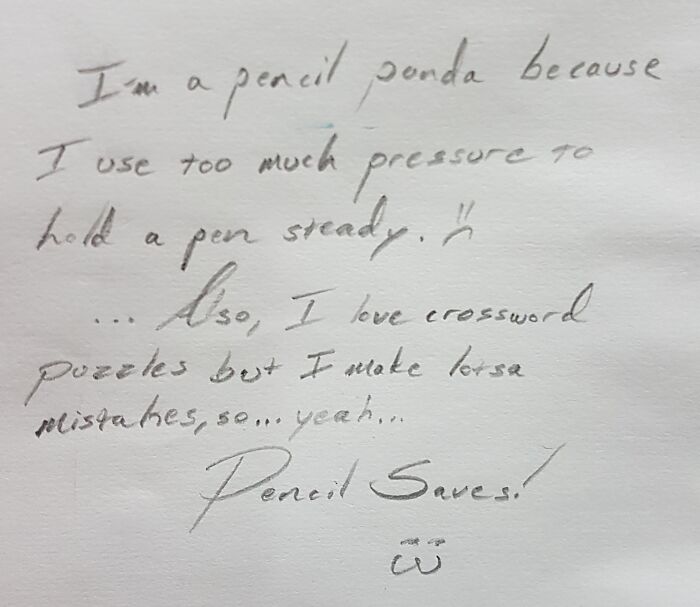 I'm a pencil panda because
I use too much pressure to
hold a pen steady. :(
... Also, I love crossword
puzzles but I make lotsa
mistakes, so... yeah...
Pencil Saves!